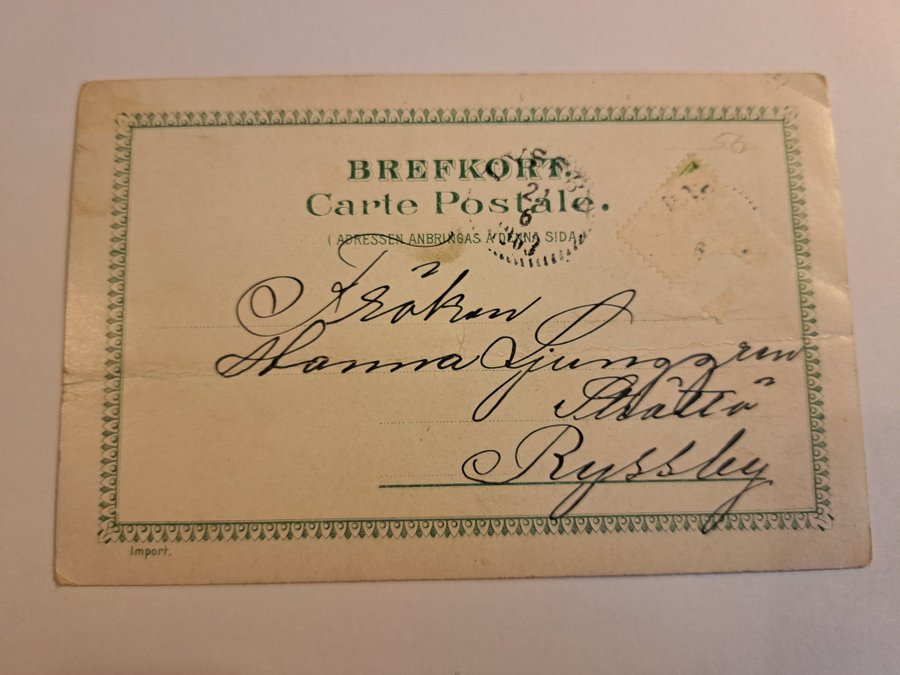 56
BREFKORT.
Carte Postale.
(ADRESSEN ANBRINGAS Å DENNA SIDA)
21
6
Fröken
Hanna Ljunggren
Ryssby
Import.